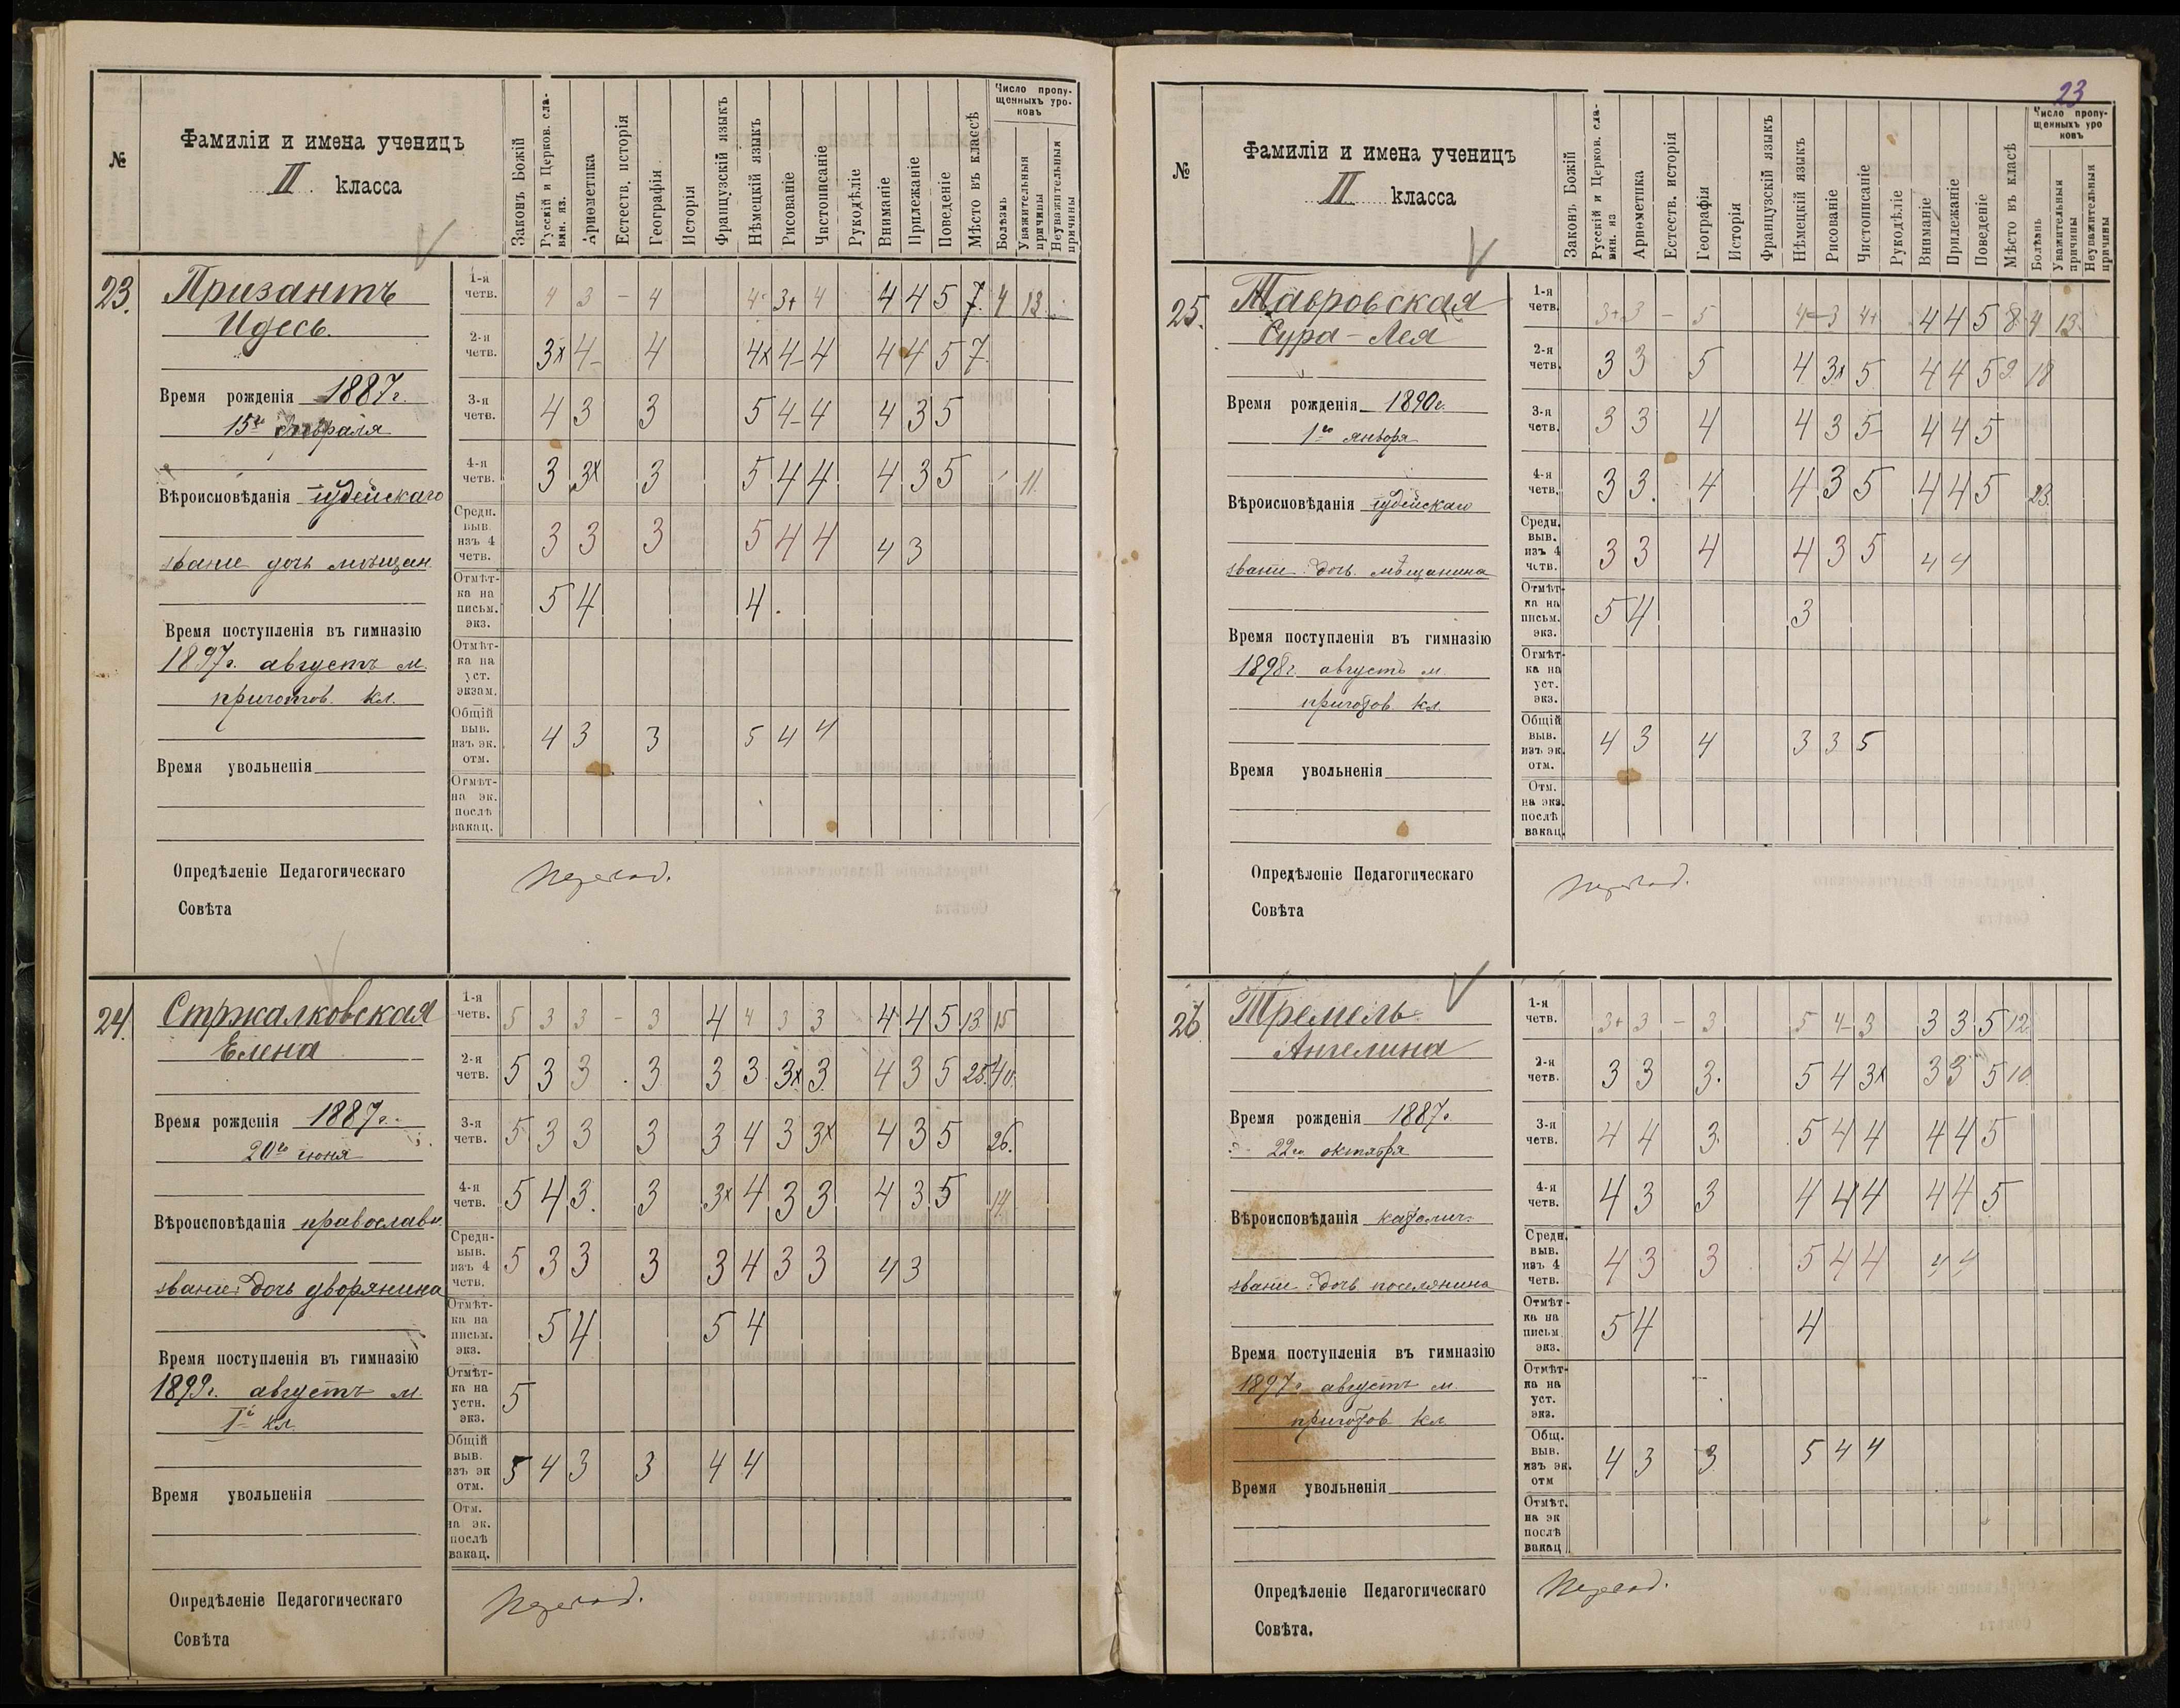 23
№
Фамиліи и имена ученицъ
II класса
Законъ Божій
Русскій и Церков. сла-
вян. яз.
Ариѳметика
Естеств. исторія
Географія
Исторія
Французскій языкъ
Нѣмецкій языкъ
Рисованіе
Чистописаніе
Рукодѣліе
Вниманіе
Прилежаніе
Поведеніе
Мѣсто въ классѣ
Число пропу-
щенныхъ уро-
ковъ
Болѣзнь
Уважительныя
причины
Неуважительныя
причины
23.
Призантъ
Идесь.
Время рожденія 1887 г.
15го февраля
Вѣроисповѣданія іудейскаго
званіе дочь мѣщан.
Время поступленія въ гимназію
1897г. августъ м.
приготов. кл.
Время увольненія
1-я четв. 4 3 – 4 4 3+ 4 4 4 5 7. 4 13
2-я четв. 3х 4- 4 4х 4- 4 4 4 5 7.
3-я четв. 4 3 3 5 4- 4 4 3 5
4-я четв. 3 3х 3 5 4 4 4 3 5 11.
Средн. выв. изъ 4 четв. 3 3 3 5 4 4 4 3
Отмѣт-ка на письм. экз. 5 4 4.
Отмѣт-ка на уст. экзам.
Общій выв. изъ эк. отм. 4 3 3 5 4 4
Отмѣт-на эк. послѣ вакац.
Опредѣленіе Педагогическаго
Совѣта
Переход.
24.
Стржалковская
Елена
Время рожденія 1887 г.
20го іюня
Вѣроисповѣданія православн.
званіе: дочь дворянина
Время поступленія въ гимназію
1899г. августъ м.
Iй кл.
Время увольненія
1-я четв. 5 3 3 – 3 4 4 3 3 4 4 5 13 15
2-я четв. 5 3 3 3 3 3 3х 3 4 3 5 25. 40.
3-я четв. 5 3 3 3 3 4 3 3х 4 3 5 26.
4-я четв. 5 4 3. 3 3х 4 3 3 4 3 5 14
Средн-выв. изъ 4 четв. 5 3 3 3 3 4 3 3 4 3
Отмѣт-ка на письм. экз. 5 4 5 4
Отмѣт-ка на устн. экз. 5
Общій выв. изъ эк отм. 5 4 3 3 4 4
Отм. на эк. послѣ вакац.
Опредѣленіе Педагогическаго
Совѣта
Переход.
№
Фамиліи и имена ученицъ
II класса
Законъ Божій
Русскій и Церков. сла-
вян. яз
Ариѳметика
Естеств. исторія
Географія
Исторія
Французскій языкъ
Нѣмецкій языкъ
Рисованіе
Чистописаніе
Рукодѣліе
Вниманіе
Прилежаніе
Поведеніе
Мѣсто въ класѣ
Число пропу-
щенныхъ уро
ковъ
Болѣзнь
Уважительныя
причины
Неуважительныя
причины
25.
Тавровская
Сура-Лея
Время рожденія 1890 г.
1го января
Вѣроисповѣданія іудейскаго
званіе: дочь мѣщанина
Время поступленія въ гимназію
1898г. августъ м.
приготов. кл
Время увольненія
1-я четв. 3+ 3 – 5 4- 3 4+ 4 4 5 8. 4 13.
2-я четв. 3 3 5 4 3х 5 4 4 5 9. 18
3-я четв. 3 3 4 4 3 5- 4 4 5
4-я четв. 3 3. 4 4 3 5 4 4 5 23.
Средн. выв. изъ 4 четв. 3 3 4 4 3 5 4 4
Отмѣт-ка на письм. экз. 5 4 3
Отмѣт-ка на уст. экз.
Общій выв. изъ эк. отм. 4 3 4 3 3 5
Отм. на экз. послѣ вакац.
Опредѣленіе Педагогическаго
Совѣта
Переход.
26
Тремель
Ангелина
Время рожденія 1887 г.
22го октября
Вѣроисповѣданія католич.
званіе: дочь поселянина
Время поступленія въ гимназію
1897г. августъ м.
приготов кл
Время увольненія
1-я четв. 3+ 3 – 3 5 4- 3 3 3 5 12.
2-я четв. 3 3 3. 5 4 3х 3 3 5 10.
3-я четв. 4 4 3. 5 4 4 4 4 5
4-я четв. 4 3 3 4 4 4 4 4 5
Средн. выв. изъ 4 четв. 4 3 3 5 4 4 4 4
Отмѣт-ка на письм. экз. 5 4 4
Отмѣт-ка на уст. экз.
Общ. выв. изъ эк. отм 4 3 3 5 4 4
Отмѣт. на эк послѣ вакац
Опредѣленіе Педагогическаго
Совѣта.
Переход.